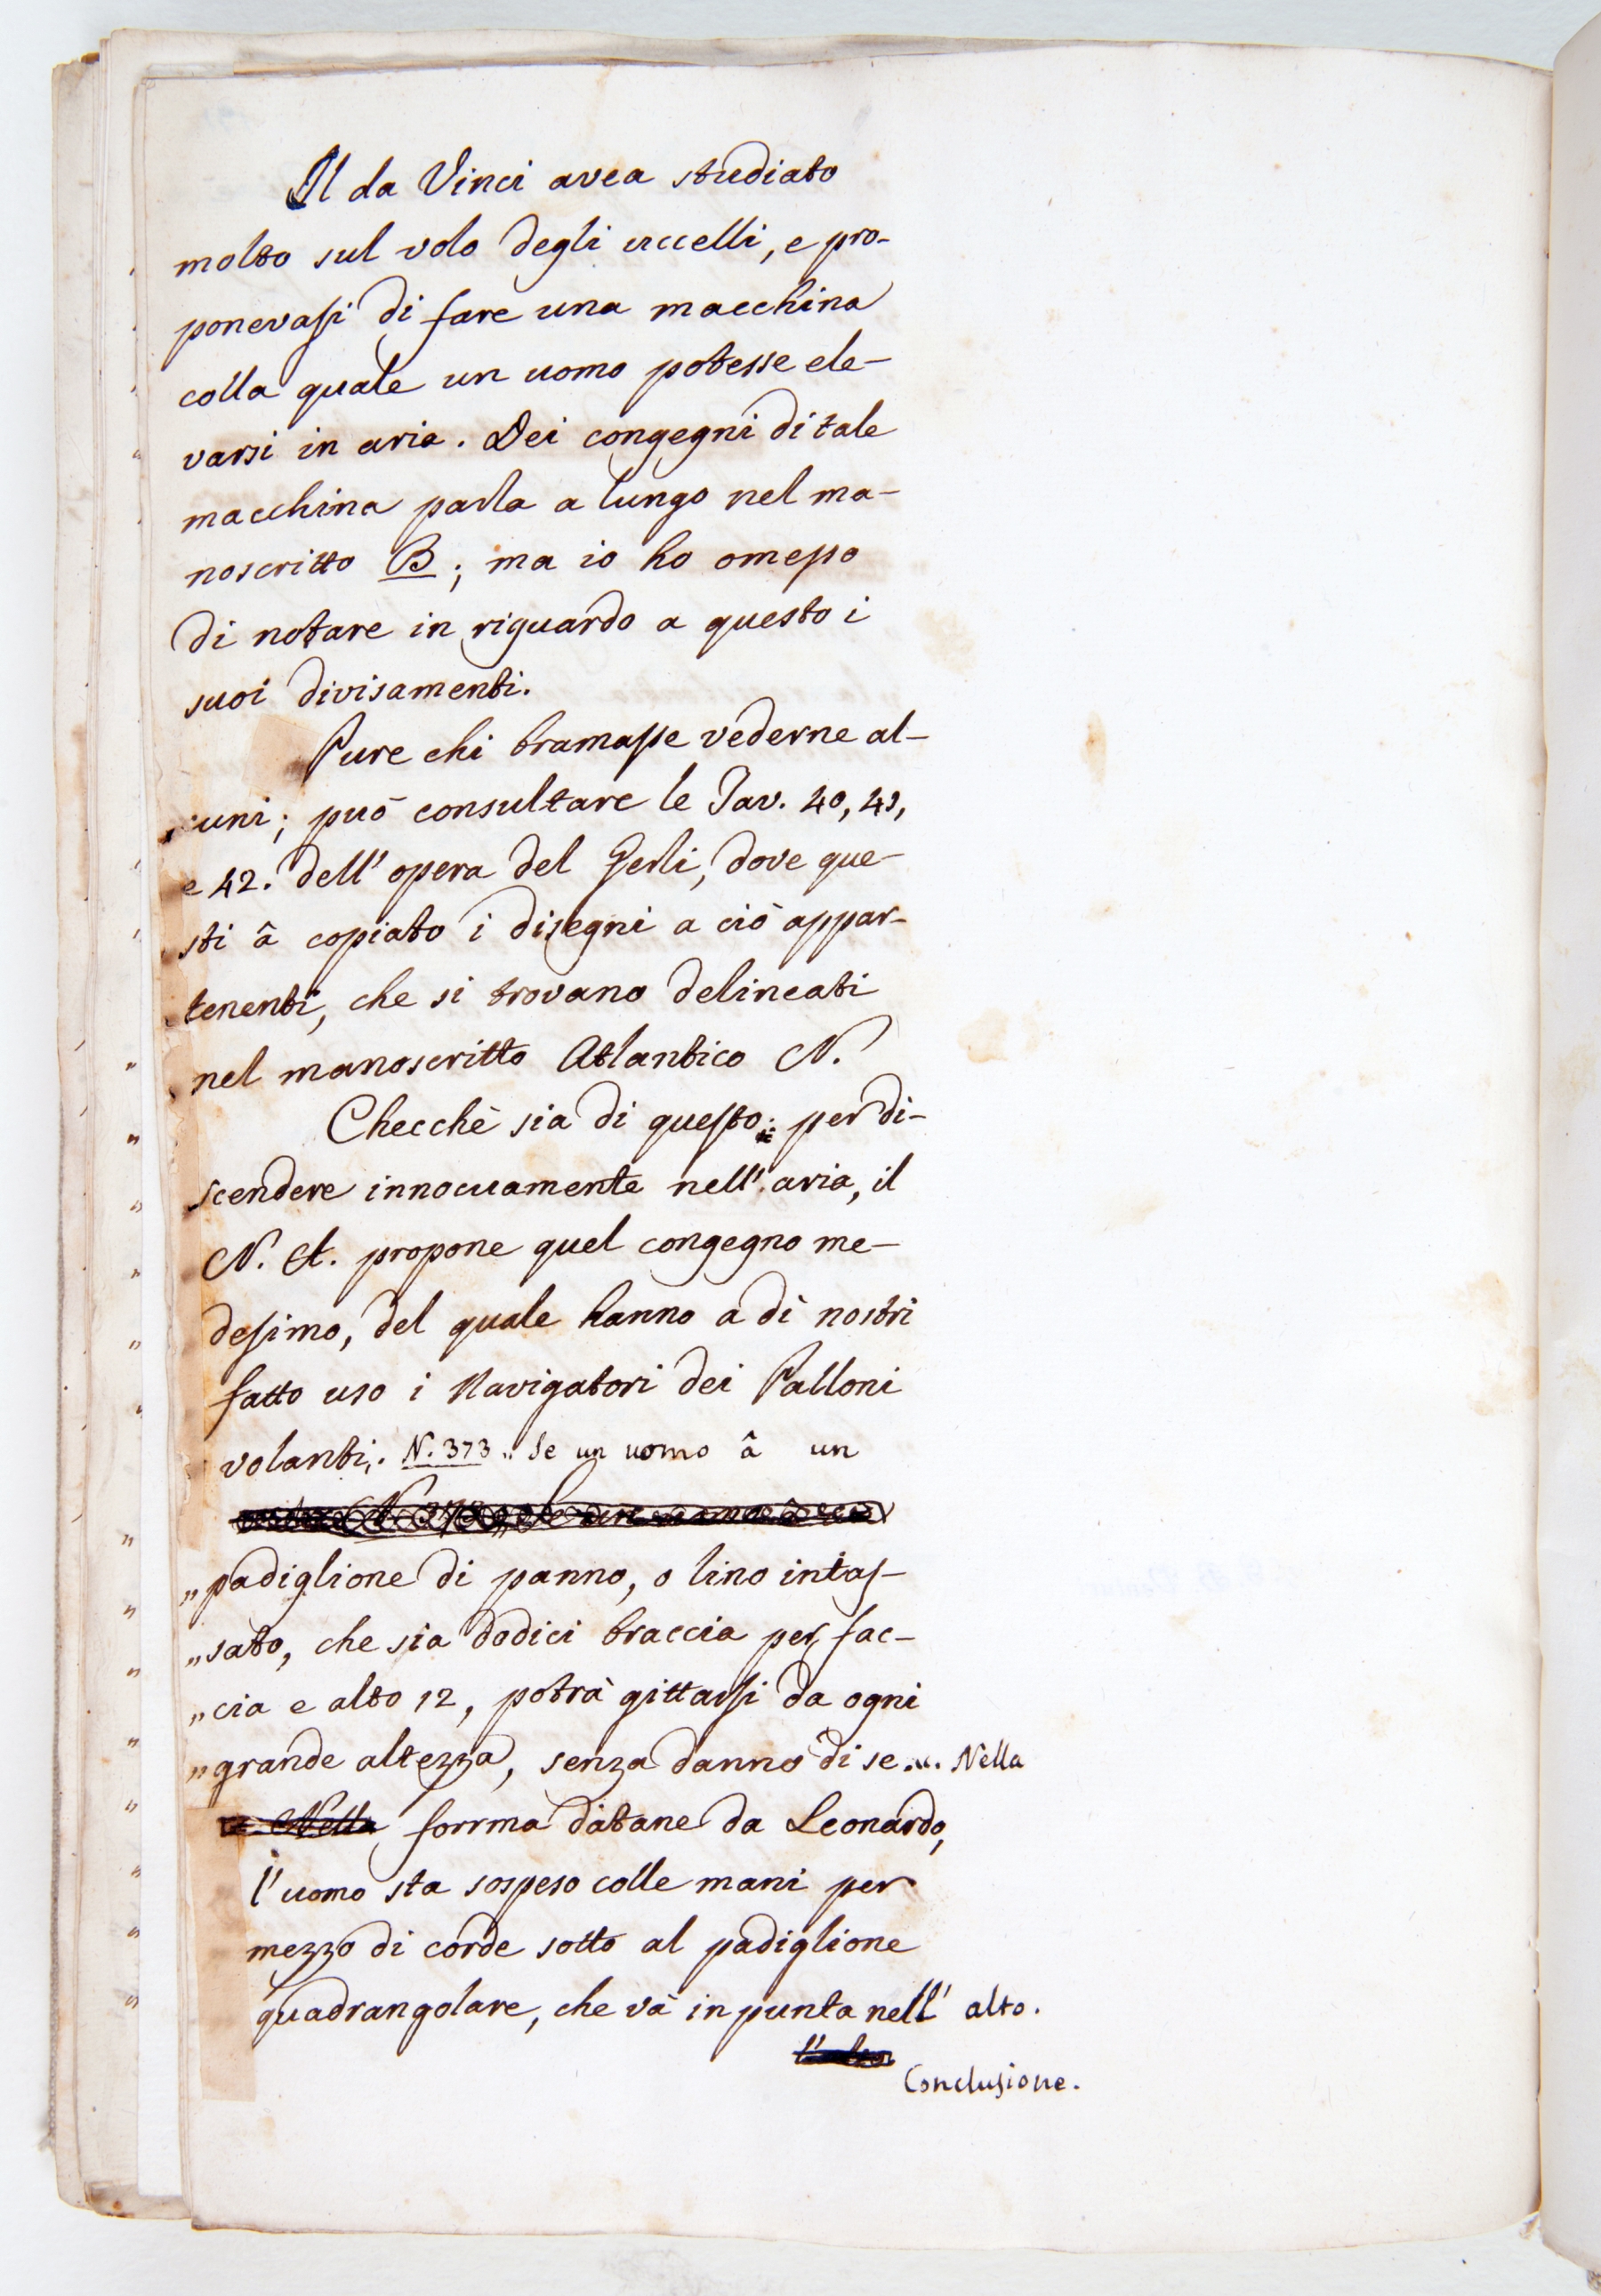 Il da Vinci avea studiato
molto sul volo degli uccelli, e pro-
ponevasi di fare una macchina
colla quale un uomo potesse ele-
varsi in aria. Dei congegni di tale
macchina parla a lungo nel ma-
noscritto B; ma io ho omesso
di notare in riguardo a questo i
suoi divisamenti.
Pure chi bramasse vederne al-
cuni; può consultare le Tav. 40, 41,
e 42. dell' opera del Gerli, dove que-
sti â copiato i disegni a ciò appar-
tenenti, che si trovano delineati
nel manoscritto Atlantico N.
Checchè sia di questo; per di-
scendere innocuamente nell' aria, il
N. A. propone quel congegno me-
desimo, del quale hanno a dì nostri
fatto uso i Navigatori dei Palloni
volanti,. N. 373 „ Se un uomo â un
N. 373 „ Se un uomo â un
„padiglione di panno, o lino intas-
„sato, che sia dodici braccia per fac-
„cia e alto 12, potrà gittarsi da ogni
„grande altezza, senza danno di se„. Nella
Nella forrma datane da Leonardo,
l'uomo sta sospeso colle mani per
mezzo di corde sotto al padiglione
quadrangolare, che và in punta nell' alto.
l'alto
Conclusione.